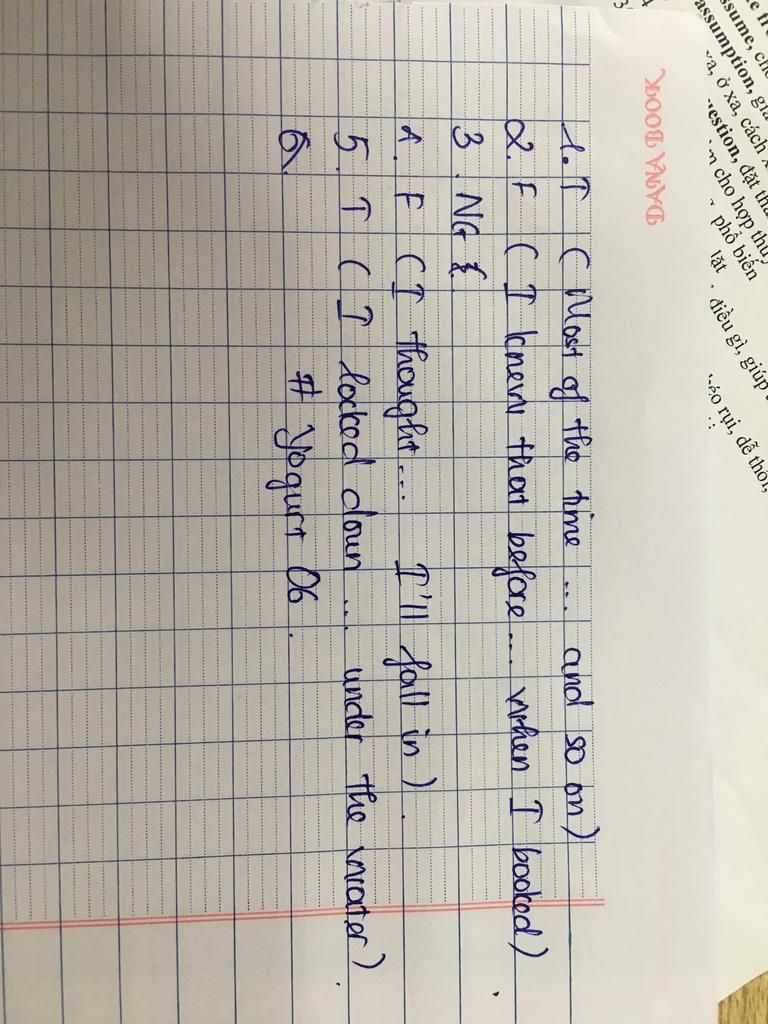 DANA BOOK
1. T (Most of the time ... and so on)
2. F (I knew that before ... when I booked)
3. NG
4. F (I thought ... I'll fall in).
5. T (I locked down ... under the water).
6.
# Yogurt 06.
assumption, giả
xa, ở xa, cách
đặt
cho hợp thủy
phổ biến
lặt
điều gì, giúp
rụi, dễ